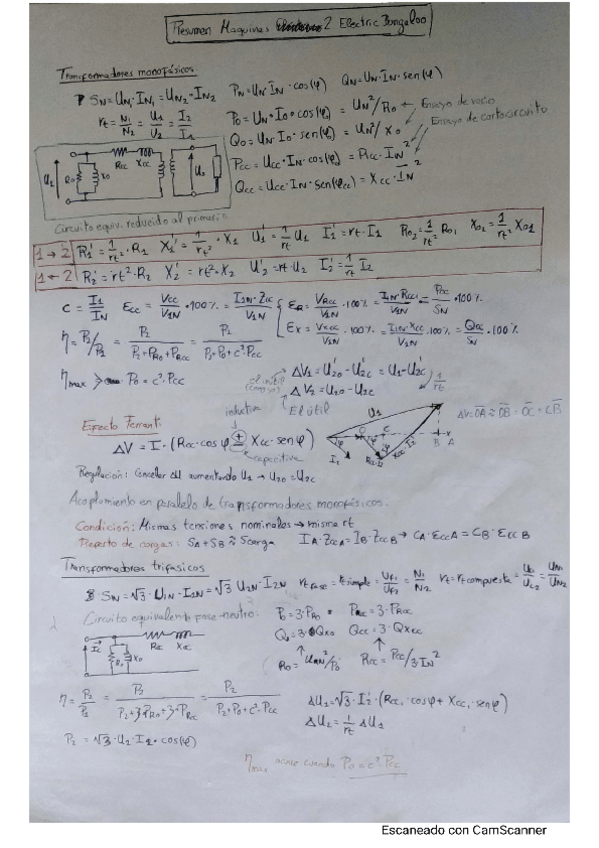 Resumen Maquinas 2 Electric Boogaloo
Transformadores monofásicos
SN = UN1·IN1 = UN2·IN2
PN = UN·IN·cos(φ) QN = UN·IN·sen(φ)
rt = N1/N2 = U1/U2 = I2/I1
P0 = UN·I0·cos(φ) = UN²/R0 Ensayo de vacio
Q0 = UN·I0·sen(φ) = UN²/X0 Ensayo de cortocircuito
Pcc = Ucc·IN·cos(φ) = Rcc·IN²
Qcc = Ucc·IN·sen(φcc) = Xcc·IN²
U1 R0 X0 Rcc Xcc U2
Circuito equiv. reducido al primario
1→2 R1' = 1/rt²·R1 X1' = 1/rt²·X1 U1' = 1/rt U1 I1' = rt·I1 R02 = 1/rt² R01 X02 = 1/rt² X01
1←2 R2' = rt²·R2 X2' = rt²·X2 U2' = rt·U2 I2' = 1/rt I2
C = I1/IN Ecc = Vcc/V1N·100% = I1N·Zcc/V1N
ER = VRcc/V1N·100% = I1N·Rcc1/V1N = Pcc/SN·100%
EX = VXcc/V1N·100% = I1N·Xcc/V1N·100% = Qcc/SN·100%
η = P2/P1 = P2/P2+PR0+PRcc = P2/P2+P0+c²·Pcc
ηmax P0 = c²·Pcc
ΔV1 = U'20 - U'2c = U1 - U'2c
ΔV2 = U20 - U2c
El útil
1/rt
Efecto Ferranti:
inductiva
ΔV = I·(Rcc·cosφ ± Xcc·senφ)
capacitiva
U1 I1 Rcc Xcc B A
ΔV = OA ≈ OB - OC = CB
Regulación: Cancelar ΔU aumentando U1 → U20 = U2c
Acoplamiento en paralelo de transformadores monofásicos.
Condición: Mismas tensiones nominales → misma rt
Reparto de cargas: SA + SB ≈ Scarga IA·ZccA = IB·ZccB → CA·EccA = CB·EccB
Transformadores trifasicos
SN = √3·U1N·I1N = √3 U2N·I2N rt fase = rt simple = Uf1/Uf2 = N1/N2 rt = rt compuesta = UL1/UL2 = UN1/UN2
Circuito equivalente fase-neutro:
P0 = 3·PR0 Pcc = 3·PRcc
Q0 = 3·QX0 Qcc = 3·QXcc
R0 = UN²/P0 Rcc = Pcc/3·IN²
R0 X0 Rcc Xcc
η = P2/P1 = P2/P2+3·PR0+3·PRcc = P2/P2+P0+c²·Pcc
ΔU1 = √3·I2'·(Rcc1·cosφ + Xcc1·senφ)
ΔU2 = 1/rt ΔU1
P2 = √3·U2·I2·cos(φ)
ηmax ocurre cuando P0 = c²·Pcc
Escaneado con CamScanner